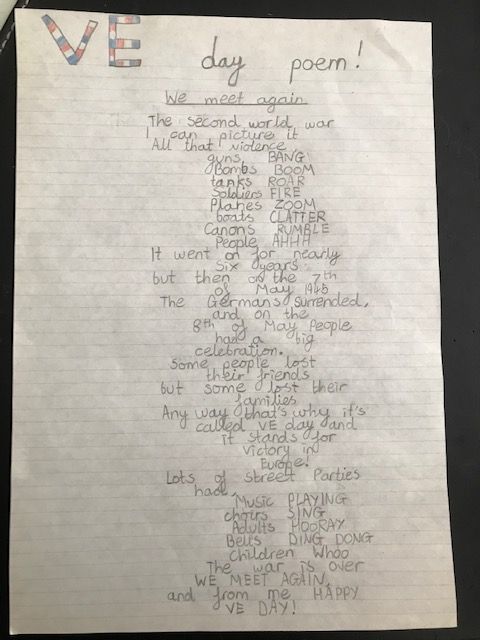 VE day poem!
We meet again
The second world war
I can picture it
All that violence
guns BANG
Bombs BOOM
tanks ROAR
Soldiers FIRE
Planes ZOOM
boats CLATTER
Canons RUMBLE
People AHHH
It went on for nearly
Six years
but then on the 7th
of May 1945
The Germans Surrended,
and on the
8th of May People
had a big
celebration.
Some people lost
their friends
but some lost their
families
Any way that's why it's
called VE day and
it stands for
victory in
Europe!
Lots of street Parties
had,
Music PLAYING
choirs SING
Adults HOORAY
Bells DING DONG
Children Whoo
The war is over
WE MEET AGAIN,
and from me HAPPY
VE DAY!